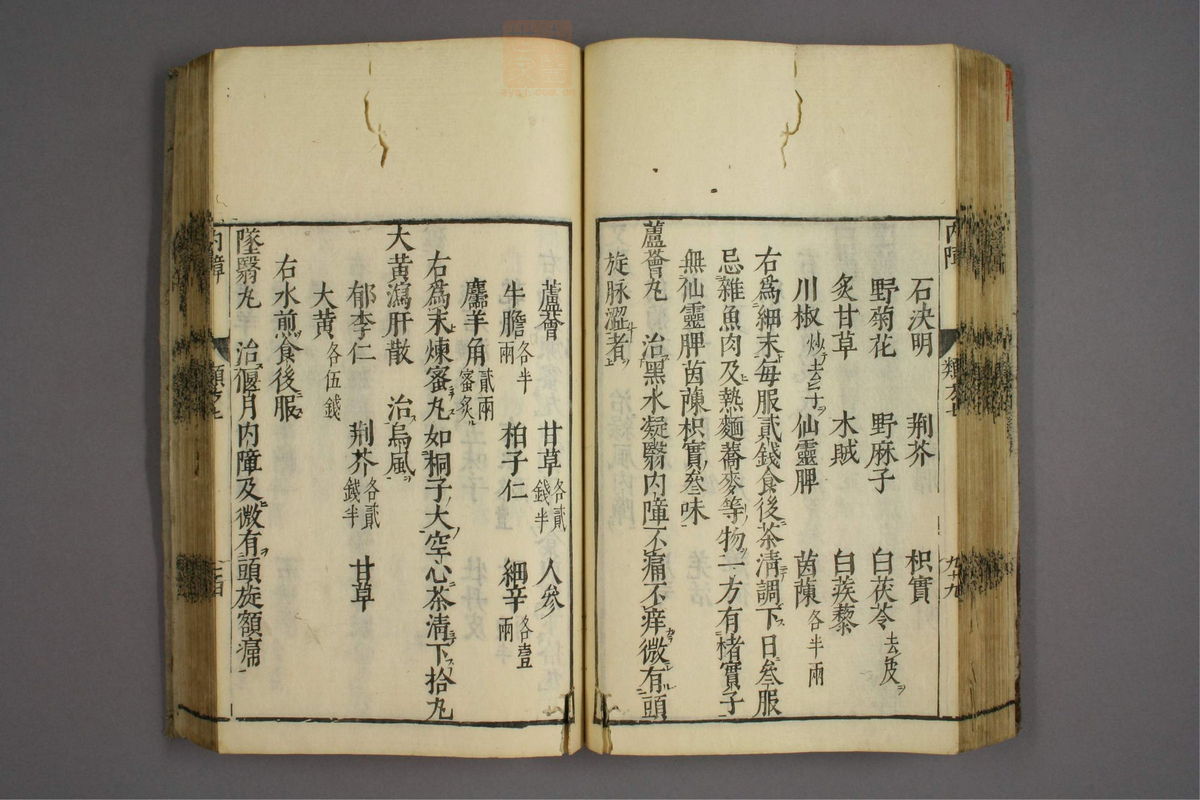 内障
石決明 荆芥 枳實
野菊花 野麻子 白茯苓去皮ヲ
炙甘草 木賊 白蒺藜
川椒 仙靈脾 茵蔯各半兩
右爲細末毎服貳錢食後茶清調下日叁服
忌雜魚肉及熱麵蕎麥等物一方有楮實子
無仙靈脾茵蔯枳實叁味
蘆薈丸 治黑水凝翳内障不痛不痒微有頭
旋脉澀者
蘆薈 甘草各貳錢半 人參
牛膽各半兩 柏子仁 細辛各壹兩
羚羊角貳兩蜜炙
右爲末煉蜜丸如桐子大空心茶清下拾丸
大黃瀉肝散 治烏風
郁李仁 荆芥各貳錢半 甘草
大黃各伍錢
右水煎食後服
墜翳丸 治偃月内障及微有頭旋額痛
内障